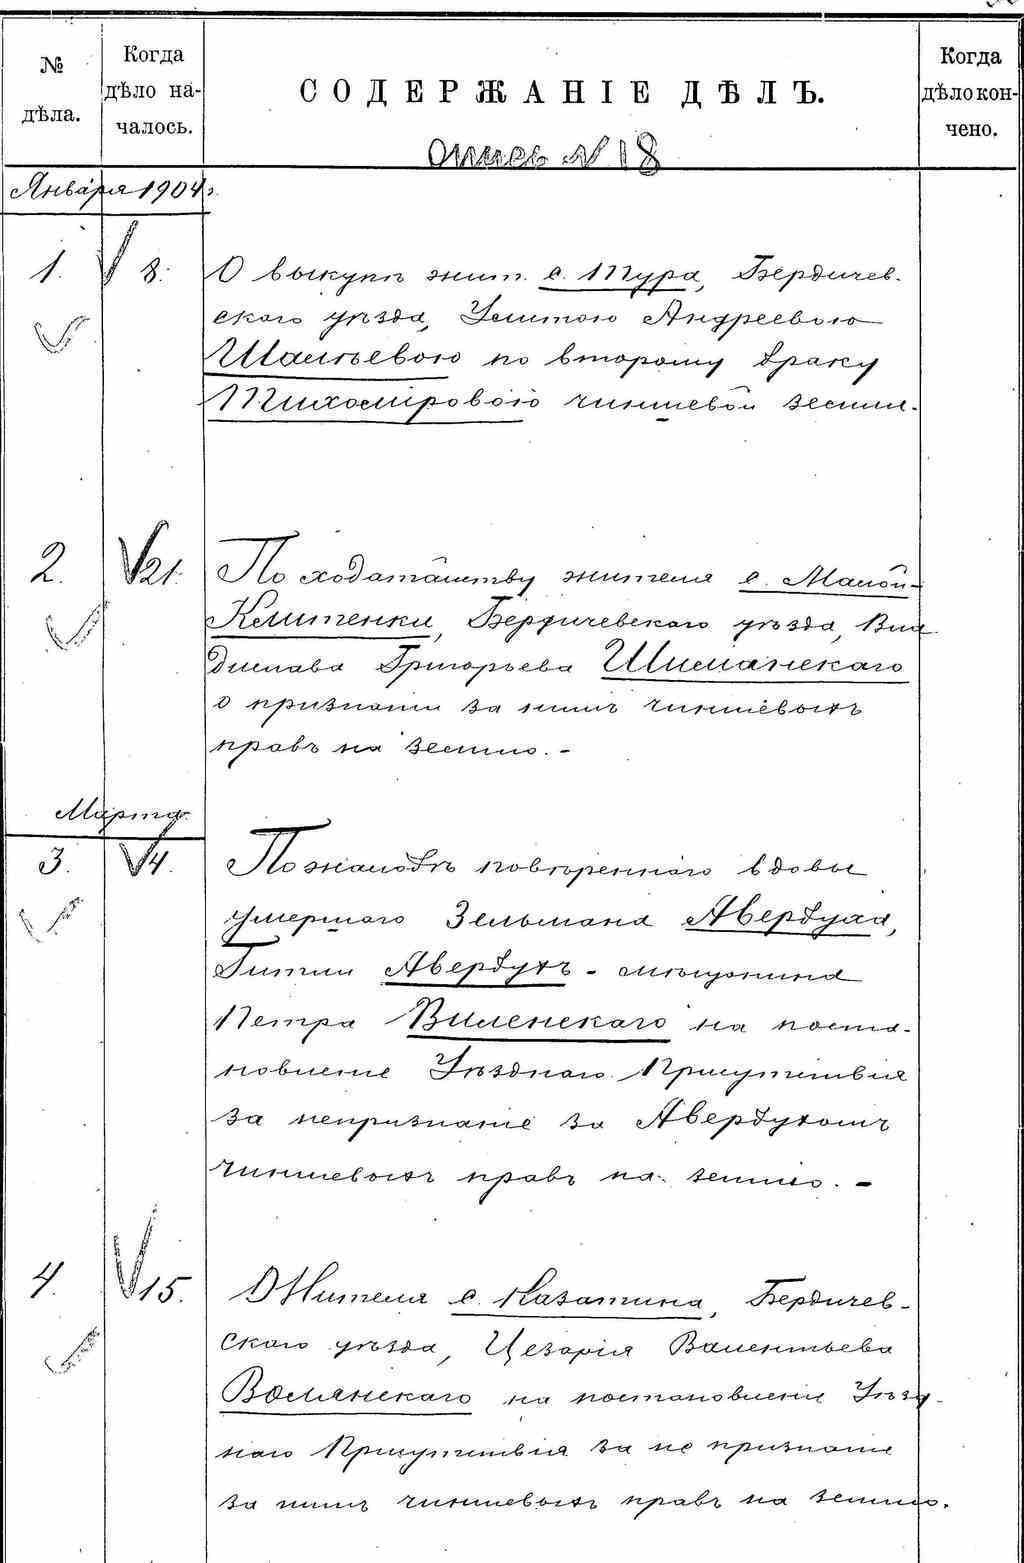 № дѣла.
Когда дѣло на-
чалось.
СОДЕРЖАНІЕ ДѢЛЪ.
Когда дѣло кон-
чено.
Опись N 18
Января 1904 г.
1. 8. О выкупѣ жит. с. Тура, Бердичев-
скаго уѣзда, Улитою Андреевою
Шалѣевою по второму браку
Тихоміровою чиншевой земли.
2. 21. По ходатайству жителя с. Малой-
Клитенки, Бердичевскаго уѣзда, Вла
дислава Григорьева Шиманскаго
о признаніи за нимъ чиншевыхъ
правъ на землю. -
Марта
3. 4. По жалобѣ повѣреннаго вдовы
умершаго Зельмана Авербуха,
Гитли Авербухъ - мѣщанина
Петра Виленскаго на поста-
новленіе Уѣзднаго Присутствія
за непризнаніе за Авербухомъ
чиншевыхъ правъ на землю. -
4. 15. Жителя с. Казатина, Бердичев-
скаго уѣзда, Цезарія Валентьева
Волянскаго на постановленіе Уѣзд-
наго Присутствія за не признаніе
за нимъ чиншевыхъ правъ на землю.